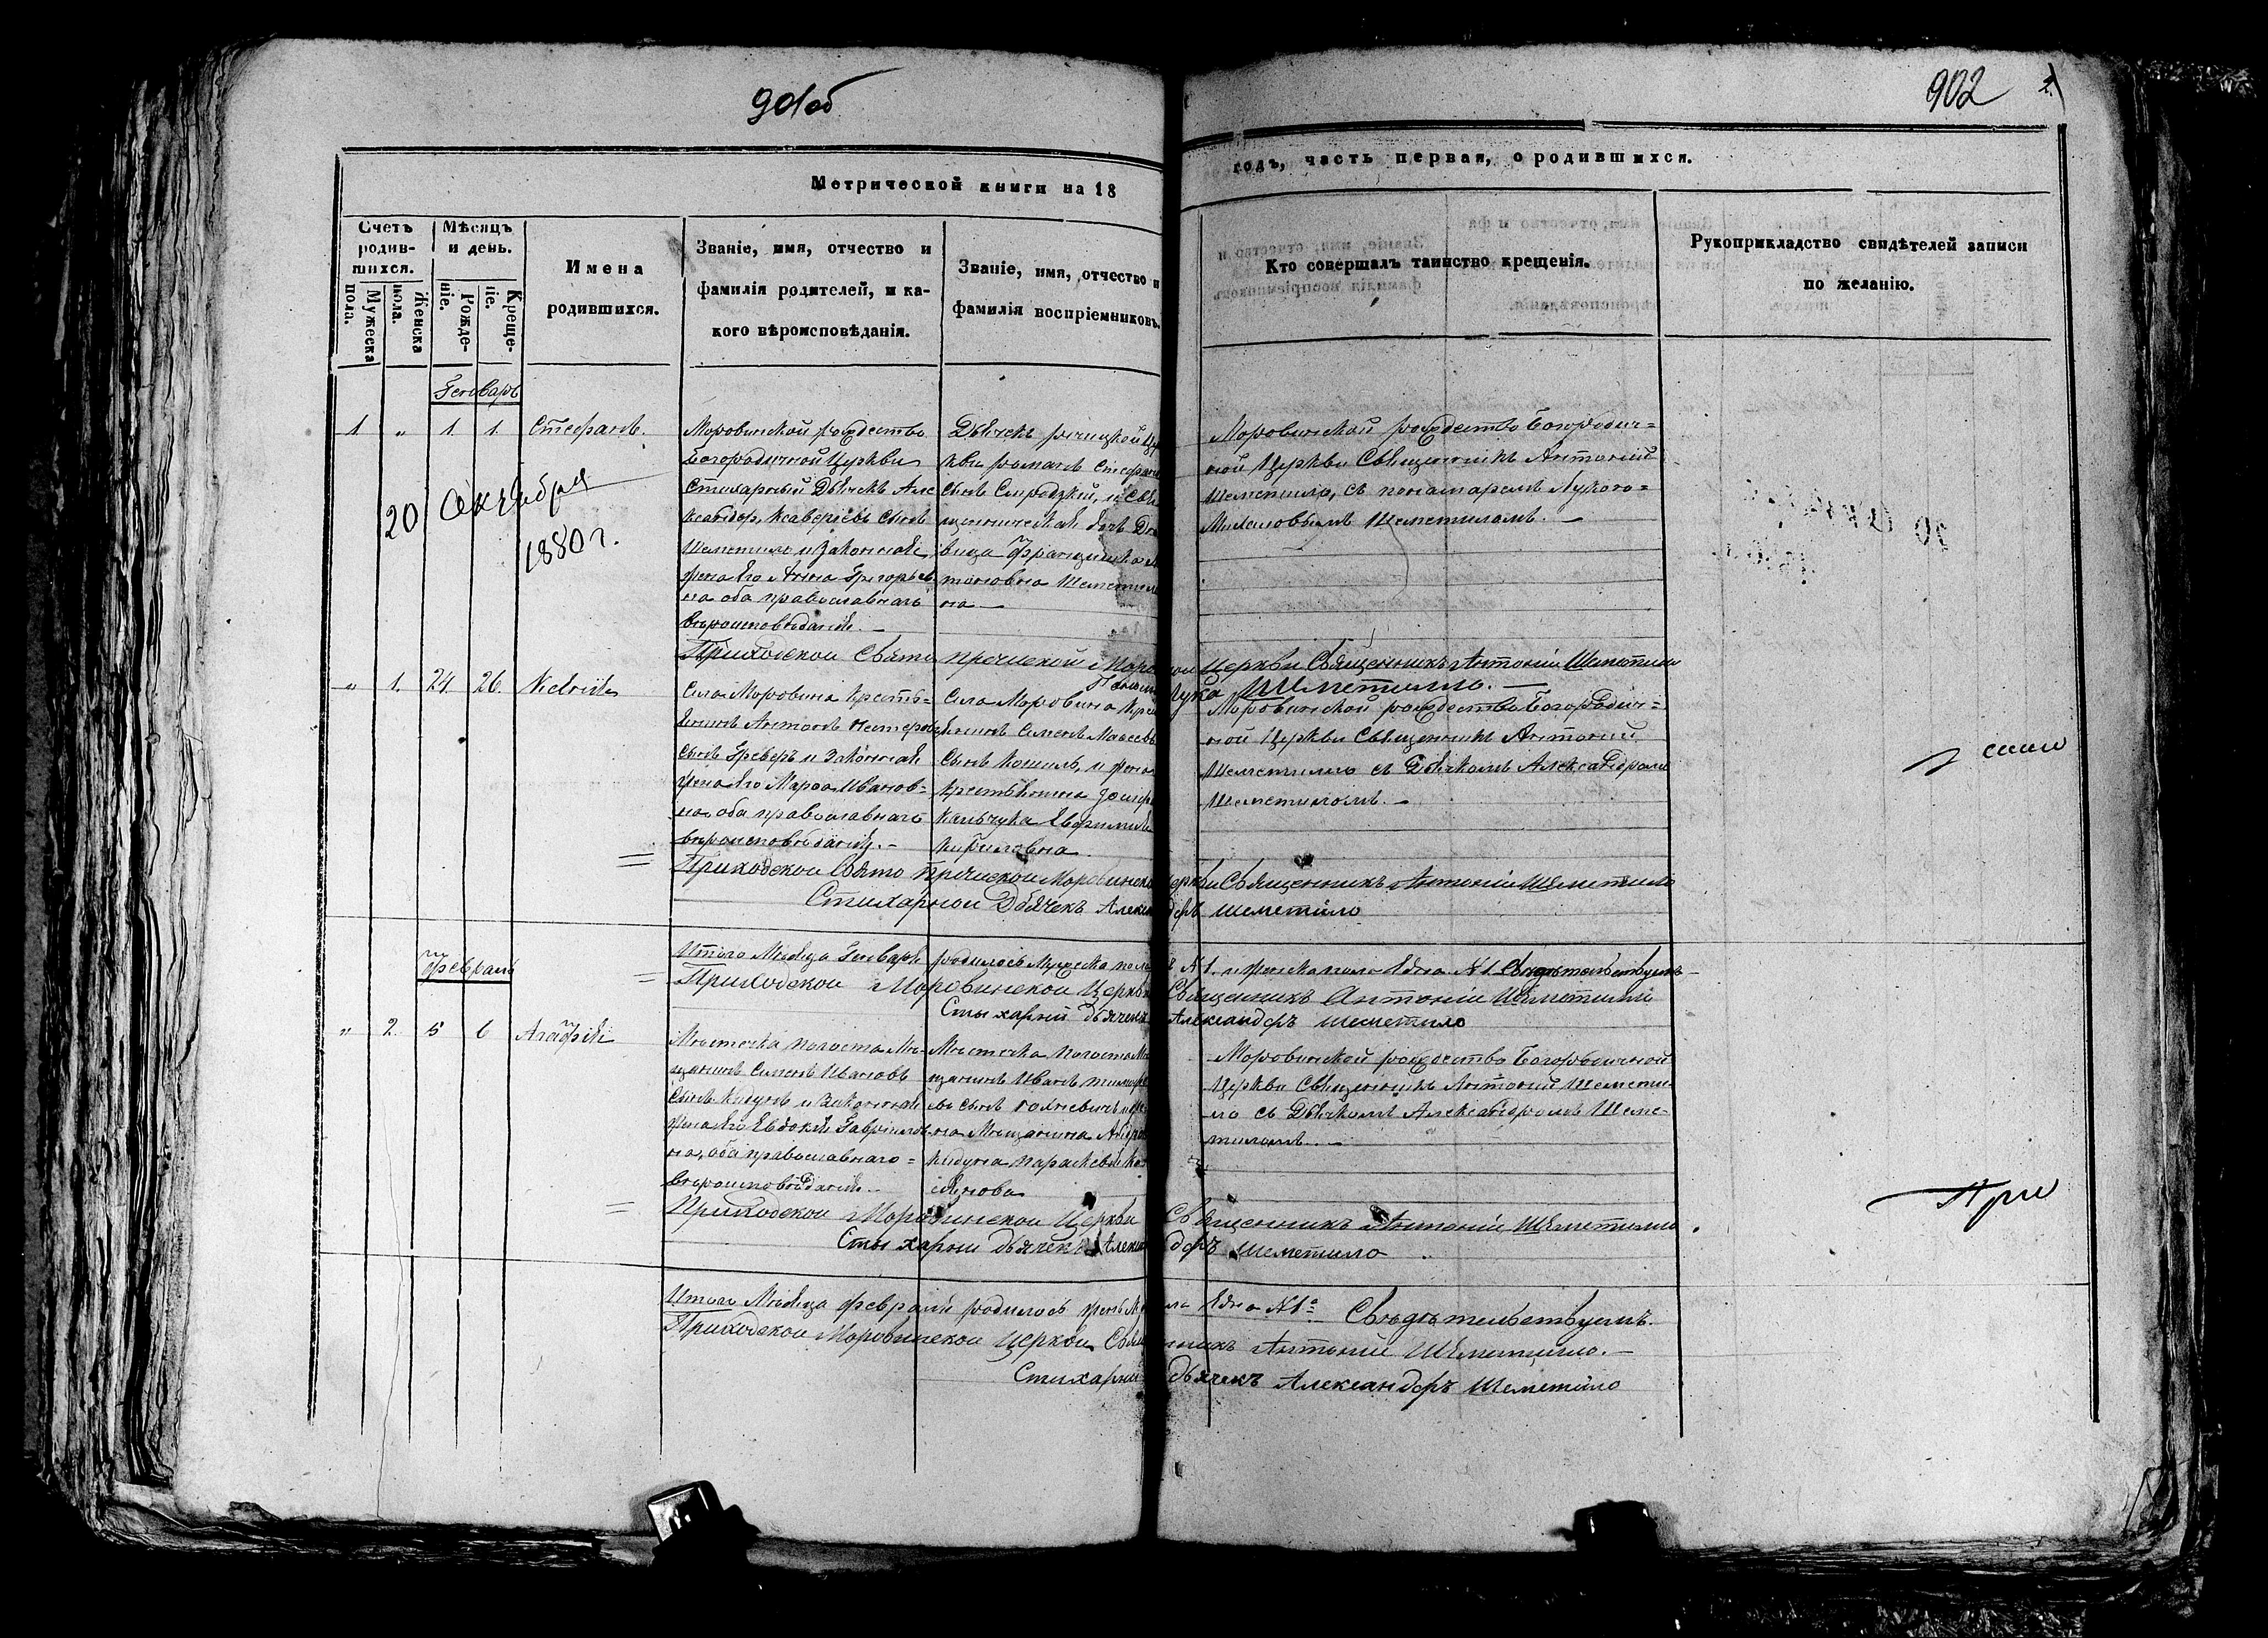 901об
902
Метрической книги на 18
годъ, часть первая, о родившихся.
Счетъ родив-шихся.
Мужеска пола.
Женска пола.
Мѣсяцъ и день.
Рожде-ніе.
Креще-ніе.
Имена
родившихся.
Званіе, имя, отчество и
фамилія родителей, и ка-
кого вѣроисповѣданія.
Званіе, имя, отчество и
фамилія воспріемниковъ.
Кто совершалъ таинство крещенія.
Рукоприкладство свидѣтелей записи
по желанію.
Генварь
1 " 1 1 Стефанъ.
20 Октября
1880 г.
Моровинской рождество
Богородичной Церкви
Стихарный Дьячекъ Алє
ксандръ Ксаверіевъ сынъ
Шеметило и законная
жена его Анна Григорьев
на оба православнаго
вѣроисповѣданія. —
Дьячекъ рѣчицкой Це
кви романъ Стефано
сынъ Смродзкій, и Свя
щенническая дочь Дѣ
вица Францишка А
тоновна Шеметил
на —
Моровинской рождество Богородич=
ной Церкви Священникъ Антоній
Шеметило, съ понамаремъ Лукою=
Михаловымъ Шеметиломъ. —
Приходской Свято пречиской Моро ной Церкви Священникъ Антоній Шеметило
Лука Шеметилло. —
" 1. 24. 26. Ксенія
Села Моровина Кресть=
янинъ Антонъ Нестеровъ
сынъ Греверъ и законная
жена его Марѳа Иванов=
на оба православнаго
вѣроисповѣданія. —
Села Моровина Кре
янинъ Семенъ Маѳеевъ
сынъ Кошиль, и жена
крестьянина
Кальчука Евфимія
Кириловна.
Моровинской рождество Богородич=
ной Церкви Священникъ Антоній
Шеметилло съ Дьячкомъ Александромъ
Шеметиломъ. —
Приходской Свято Пречиской Моровинско церкви Священникъ Антоній Шеметило
Стихарной Дьячекъ Александеръ Шеметило
Итого Мѣсяца Генваря родилось мужеска пола N 1. и женска пола една N 1. Свидѣтельствуемъ
Приходской Моровинской Церкви Священникъ Антоній Шеметилло
Стыхарній дьячекъ Александеръ Шеметило
Февраль
" 2. 5 6 Агафія
Мѣстечка Погоста Мѣ-
щанинъ Семенъ Ивановъ
сынъ Кидунъ и законная
жена его Евдокія Гавріилов
на, оба православнаго=
вѣроисповѣданія. —
Мѣстечка Погоста Мѣ
щанинъ Иванъ
въ сынъ и же
на Мѣщанина Андрея
Кидуна Параскевія
Моровинской рождество Богородичной
Церкви Священникъ Антоній Шемети-
ло съ Дьячкомъ Александромъ Шеме-
тиломъ. —
Приходской Моровинской Церкви Священникъ Антоній Шеметилло
Стыхарни дьячекъ Александеръ Шеметило
При
Итого Мѣсяца февраля родилось жен ла една N 1. Свѣдѣтельствуемъ.
Приходской Моровинской Церкви Свящ нникъ Антоній Шеметилло. —
Стихарни дьячекъ Александеръ Шеметило